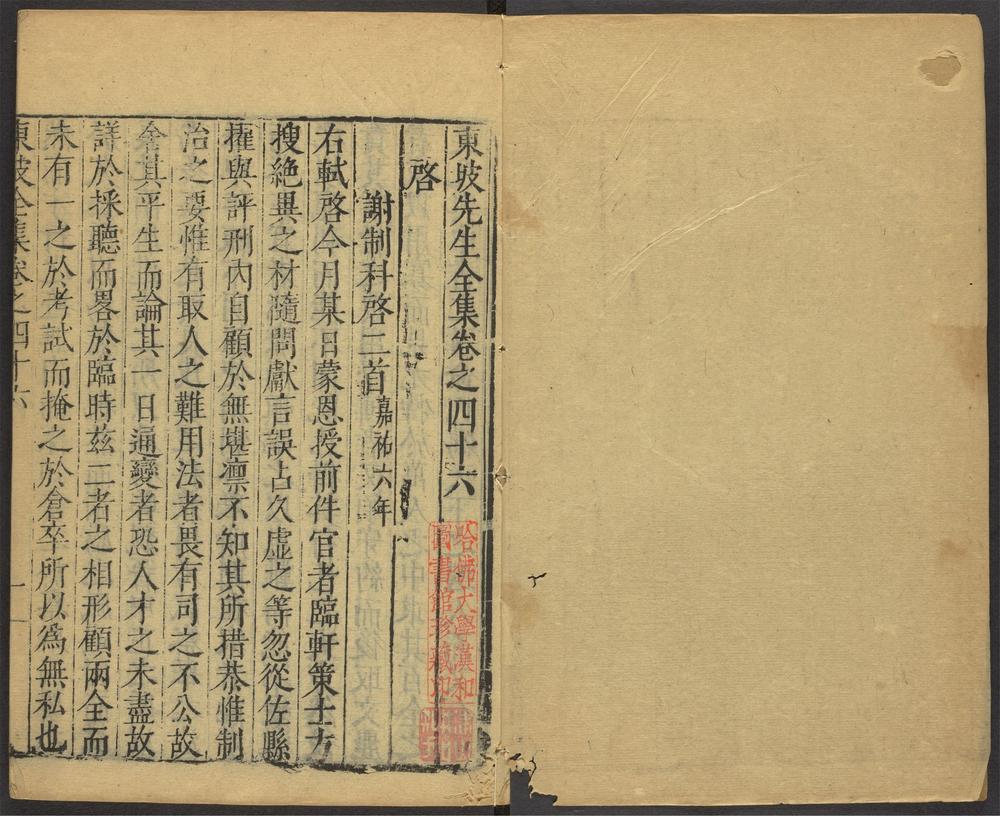 東坡先生全集卷之四十六
啓
謝制科啓二首嘉祐六年
右軾啓今月某日蒙恩授前件官者臨軒策士方
搜絶異之材隨問獻言誤占久虛之等忽從佐縣
擢與評刑內自顧於無堪凛不知其所措恭惟制
治之要惟有取人之難用法者畏有司之不公故
舍其平生而論其一日通變者恐人才之未盡故
詳於採聽而畧於臨時茲二者之相形顧兩全而
未有一之於考試而掩之於倉卒所以爲無私也
東坡全集卷之四十六 一
哈佛大學漢和
圖書館珍藏印